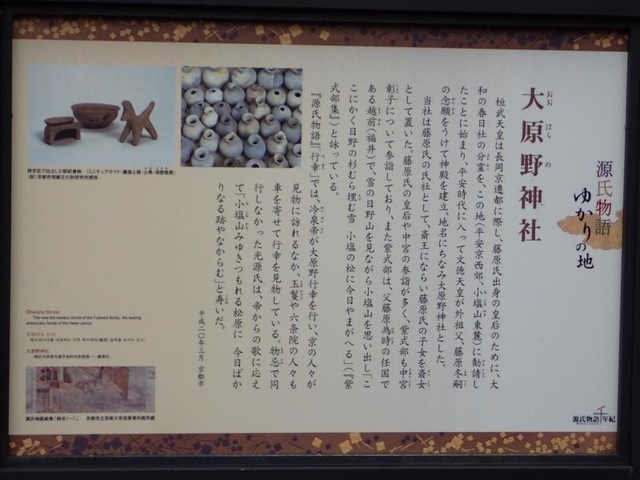 源氏物語
ゆかりの地
大原野神社
おお はら の
桓武天皇は長岡京遷都に際し、藤原氏出身の皇后のために、大
和の春日社の分霊を、この地(平安京西郊、小塩山東麓)に勧請し
たことに始まり、平安時代に入って文徳天皇が外祖父、藤原冬嗣
の念願をうけて神殿を建立、地名にちなみ大原野神社とした。
当社は藤原氏の氏社として、斎王にならい藤原氏の子女を斎女
として置いた。藤原氏の皇后や中宮の参詣が多く、紫式部も中宮
彰子について参詣しており、また紫式部は、父藤原為時の任国で
ある越前(福井)で、雪の日野山を見ながら小塩山を思い出し「こ
こにかく日野の杉むら埋む雪 小塩の松に今日やまがへる」(『紫
式部集』)と詠っている。
『源氏物語』「行幸」では、冷泉帝が大原野行幸を行い、京の人々が
見物に訪れるなか、玉鬘や六条院の人々も
車を寄せて行幸を見物している。物忌で同
行しなかった光源氏は、帝からの歌に応え
て「小塩山みゆきつもれる松原に 今日ばか
りなる跡やなからむ」と寿いだ。
平成二〇年三月 京都市
Oharano Shrine
This was the tutelary shrine of the Fujiwara family, the leading
aristocratic family of the Heian period.
大原野神社
源氏物語千年紀